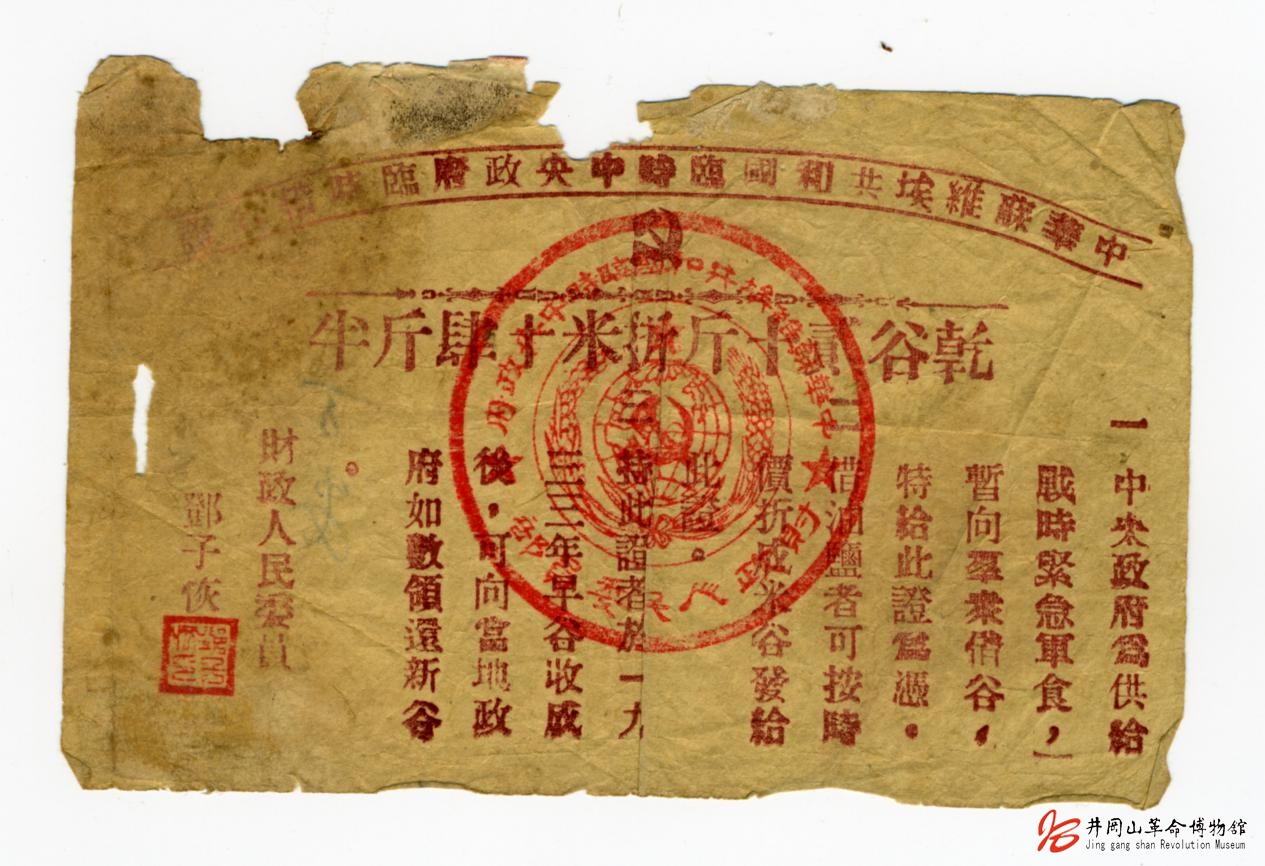 中華蘇維埃共和國臨時中央政府臨時借谷證
乾谷貳十斤折米十肆斤半
一 中央政府爲供給
戰時緊急軍食，
暫向羣衆借谷，
特給此證爲憑。
二 借油鹽者可按時
價折成米谷發給
此證。
三 持此證者於一九
三三年早谷收成
後，可向當地政
府如數領還新谷
。
財政人民委員
鄧子恢
中華蘇維埃共和國臨時中央政府
財政人民委員部
井岡山革命博物館
Jing gang shan Revolution Museum